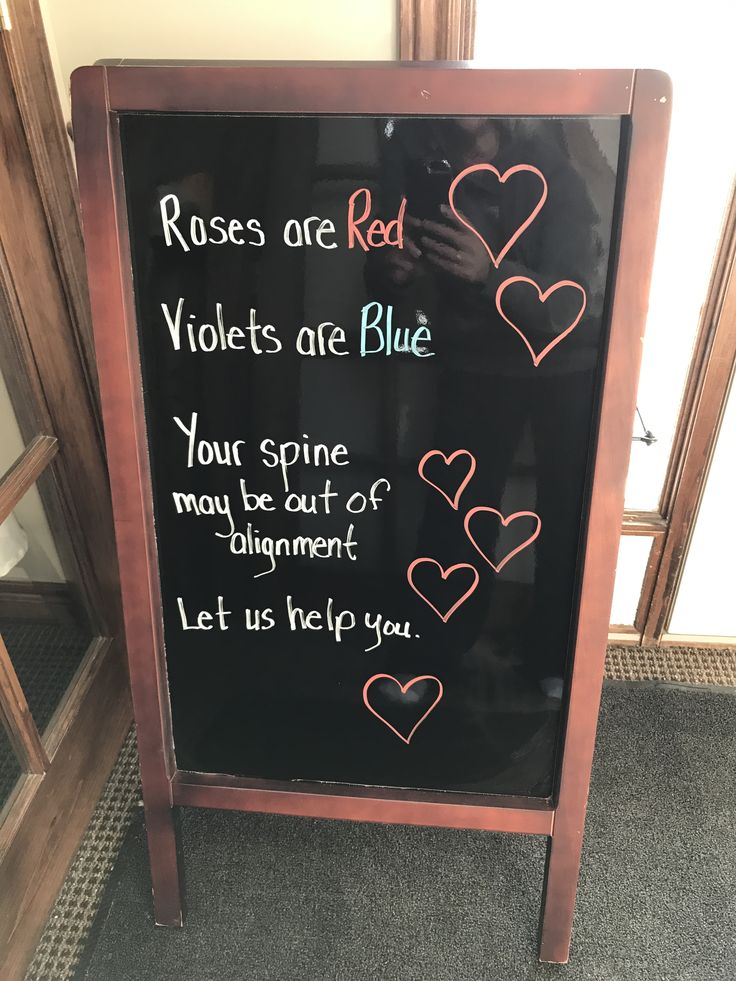 Roses are Red
Violets are Blue
Your spine
may be out of
alignment
Let us help you.